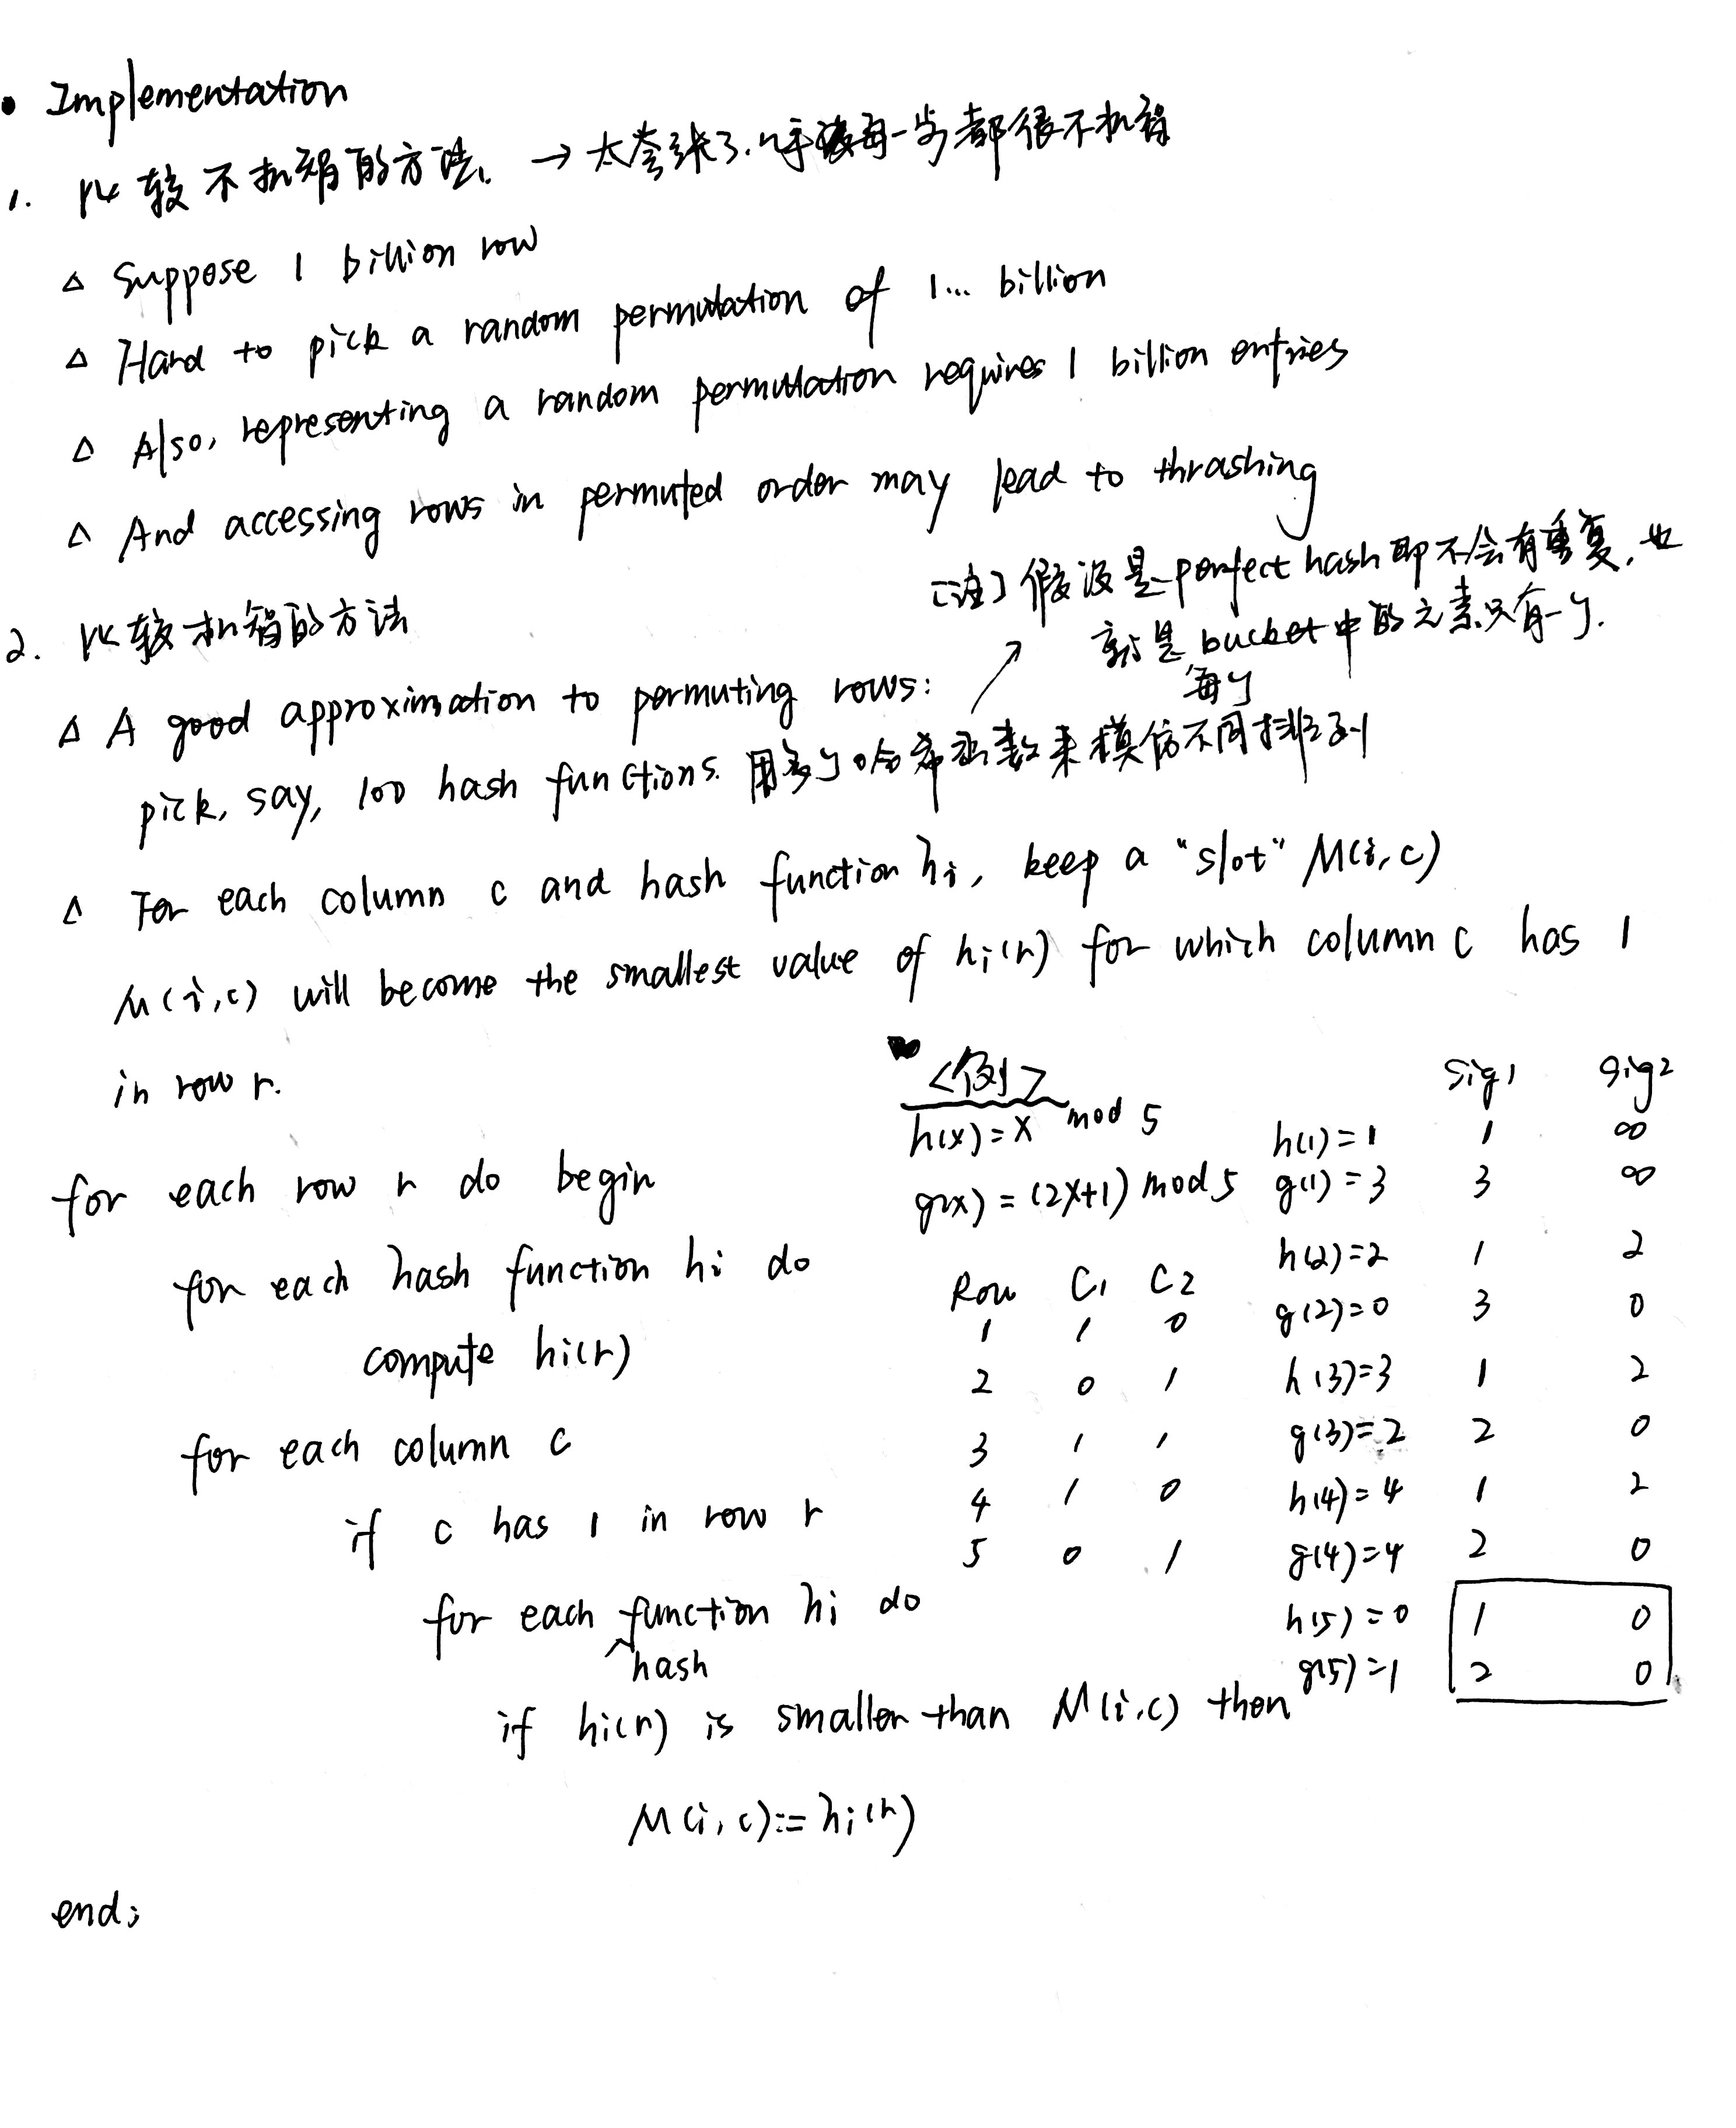 • Implementation
1. 比较不机智的方法. → 太夸张了.呼每一步都很不机智
△ Suppose 1 billion row
△ Hard to pick a random permutation of 1... billion
△ Also, representing a random permutation requires 1 billion entries
△ And accessing rows in permuted order may lead to thrashing
[注] 假设是perfect hash 即不会有重复, 也
就是 bucket 中的元素只有一个.
每个
2. 比较机智的方法
△ A good approximation to permuting rows:
pick, say, 100 hash functions. 用多个哈希函数来模仿不同排列
△ For each column c and hash function hi, keep a "slot" M(i, c)
M(i, c) will become the smallest value of hi(r) for which column c has 1
in row r.
for each row r do begin
for each hash function hi do
compute hi(r)
for each column c
if c has 1 in row r
for each function hi do
hash
if hi(r) is smaller than M(i, c) then
M(i, c) := hi(r)
end;
<例>
h(x) = x mod 5
g(x) = (2x+1) mod 5
Row C1 C2
1 1 0
2 0 1
3 1 1
4 1 0
5 0 1
Sig1 Sig2
h(1)=1 1 ∞
g(1)=3 3 ∞
h(2)=2 1 2
g(2)=0 3 0
h(3)=3 1 2
g(3)=2 2 0
h(4)=4 1 2
g(4)=4 2 0
h(5)=0 1 0
g(5)=1 2 0